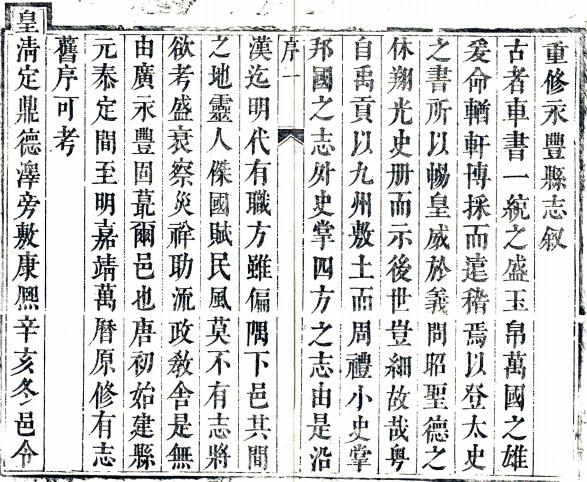 重修永豐縣志叙
古者車書一統之盛玉帛萬國之雄
爰命輶軒博採而遠稽焉以登太史
之書所以暢皇威於義問昭聖德之
休翔光史册而示後世豈細故哉粵
自禹貢以九州敷土而周禮小史掌
邦國之志外史掌四方之志由是沿
序一
漢迄明代有職方雖偏隅下邑其間
之地靈人傑國賦民風莫不有志將
欲考盛衰察災祥助流政敎舍是無
由廣永豐固蕞爾邑也唐初始建縣
元泰定間至明嘉靖萬曆原修有志
舊序可考
皇淸定鼎德澤旁敷康熈辛亥冬邑令